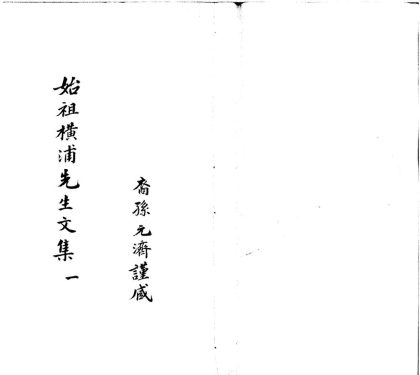 始祖橫浦先生文集 一
裔孫元濟謹臧